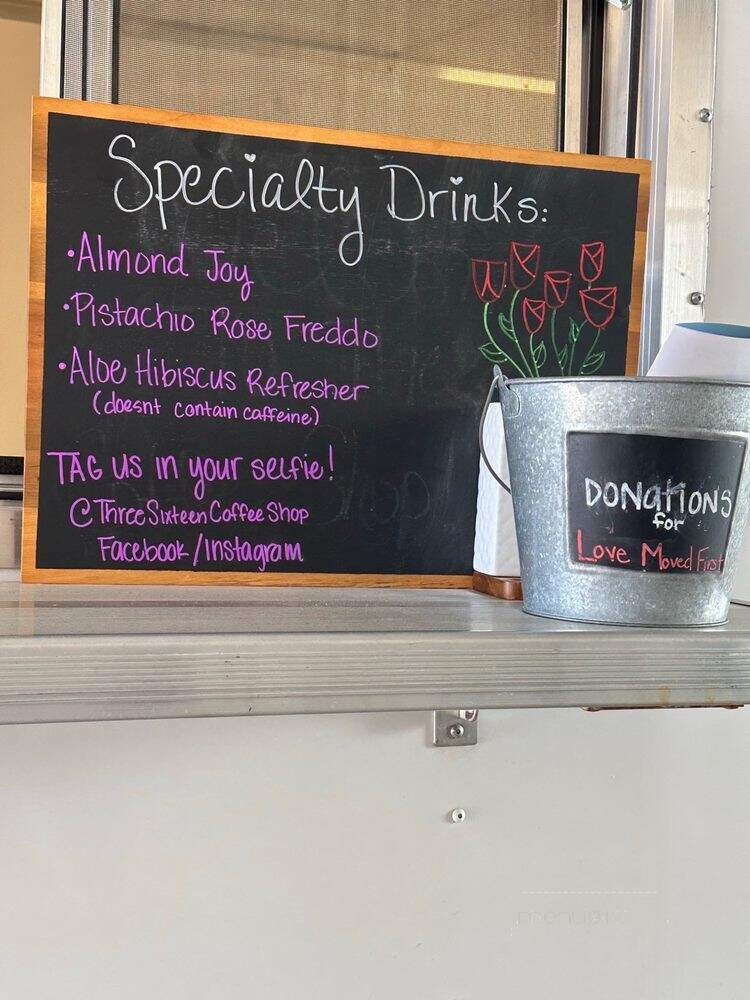 Specialty Drinks:
•Almond Joy
•Pistachio Rose Freddo
•Aloe Hibiscus Refresher
(doesnt contain caffeine)
TAG us in your selfie!
@ThreeSixteenCoffeeShop
Facebook/Instagram
DONATIONS
for
Love Moved First